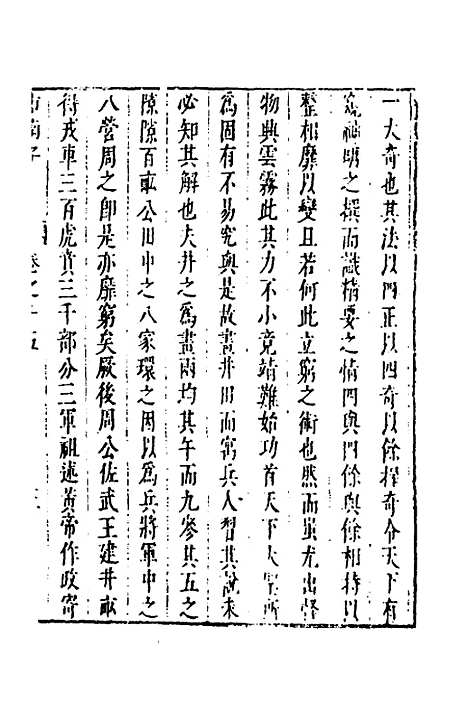 一大奇也其法以四正以四奇以餘握奇令天下有
窺神明之撰而識精要之情四與四餘與餘相持以
整相靡以變且若何此立窮之術也然而虽尤出督
物興雲霧此其力不小竟靖難始功首天下大聖所
爲固有不易究與是故畫井田而寓兵人習其說未
必知其解也夫井之爲畫兩均其午而九參其五之
隙隙百畝公田中之八家環之因以爲兵將軍中之
八營周之即是亦靡窮矣厥後周公佐武王建井畝
得戎車三百虎賁三千部分三軍祖述黃帝作政寄
市南子
卷之十五
三